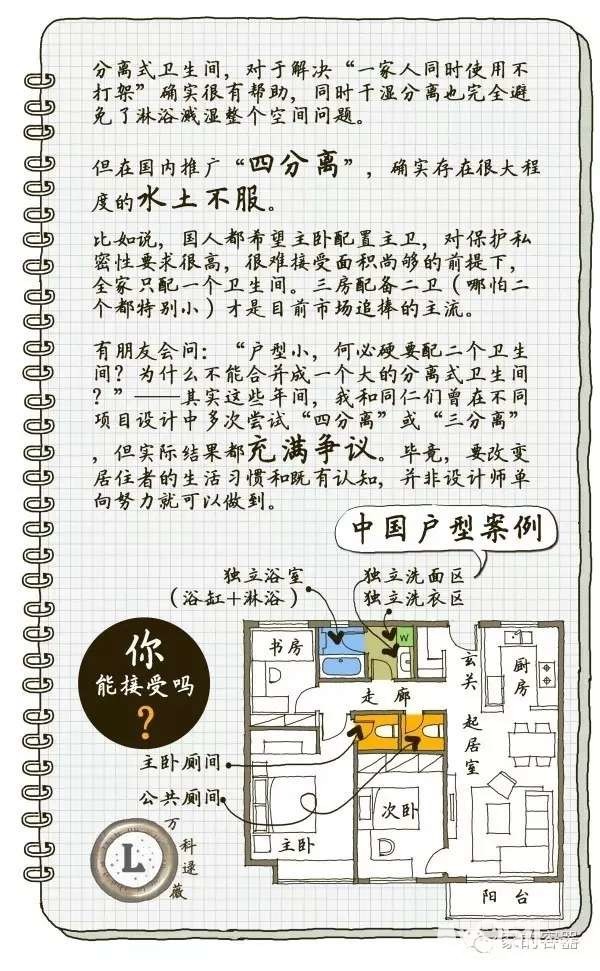 分离式卫生间，对于解决“一家人同时使用不
打架”确实很有帮助，同时干湿分离也完全避
免了淋浴溅湿整个空间问题。
但在国内推广“四分离”，确实存在很大程
度的水土不服。
比如说，国人都希望主卧配置主卫，对保护私
密性要求很高，很难接受面积尚够的前提下，
全家只配一个卫生间。三房配备二卫（哪怕二
个都特别小）才是目前市场追捧的主流。
有朋友会问：“户型小，何必硬要配二个卫生
间？为什么不能合并成一个大的分离式卫生间
？”——其实这些年间，我和同仁们曾在不同
项目设计中多次尝试“四分离”或“三分离”
，但实际结果都充满争议。毕竟，要改变
居住者的生活习惯和既有认知，并非设计师单
向努力就可以做到。
中国户型案例
独立浴室
（浴缸+淋浴）
独立洗面区
独立洗衣区
你
能接受吗
？
书房
W
玄关
厨房
走廊
起居室
主卧厕间
公共厕间
主卧
次卧
阳台
L
万科逯薇
家的容器